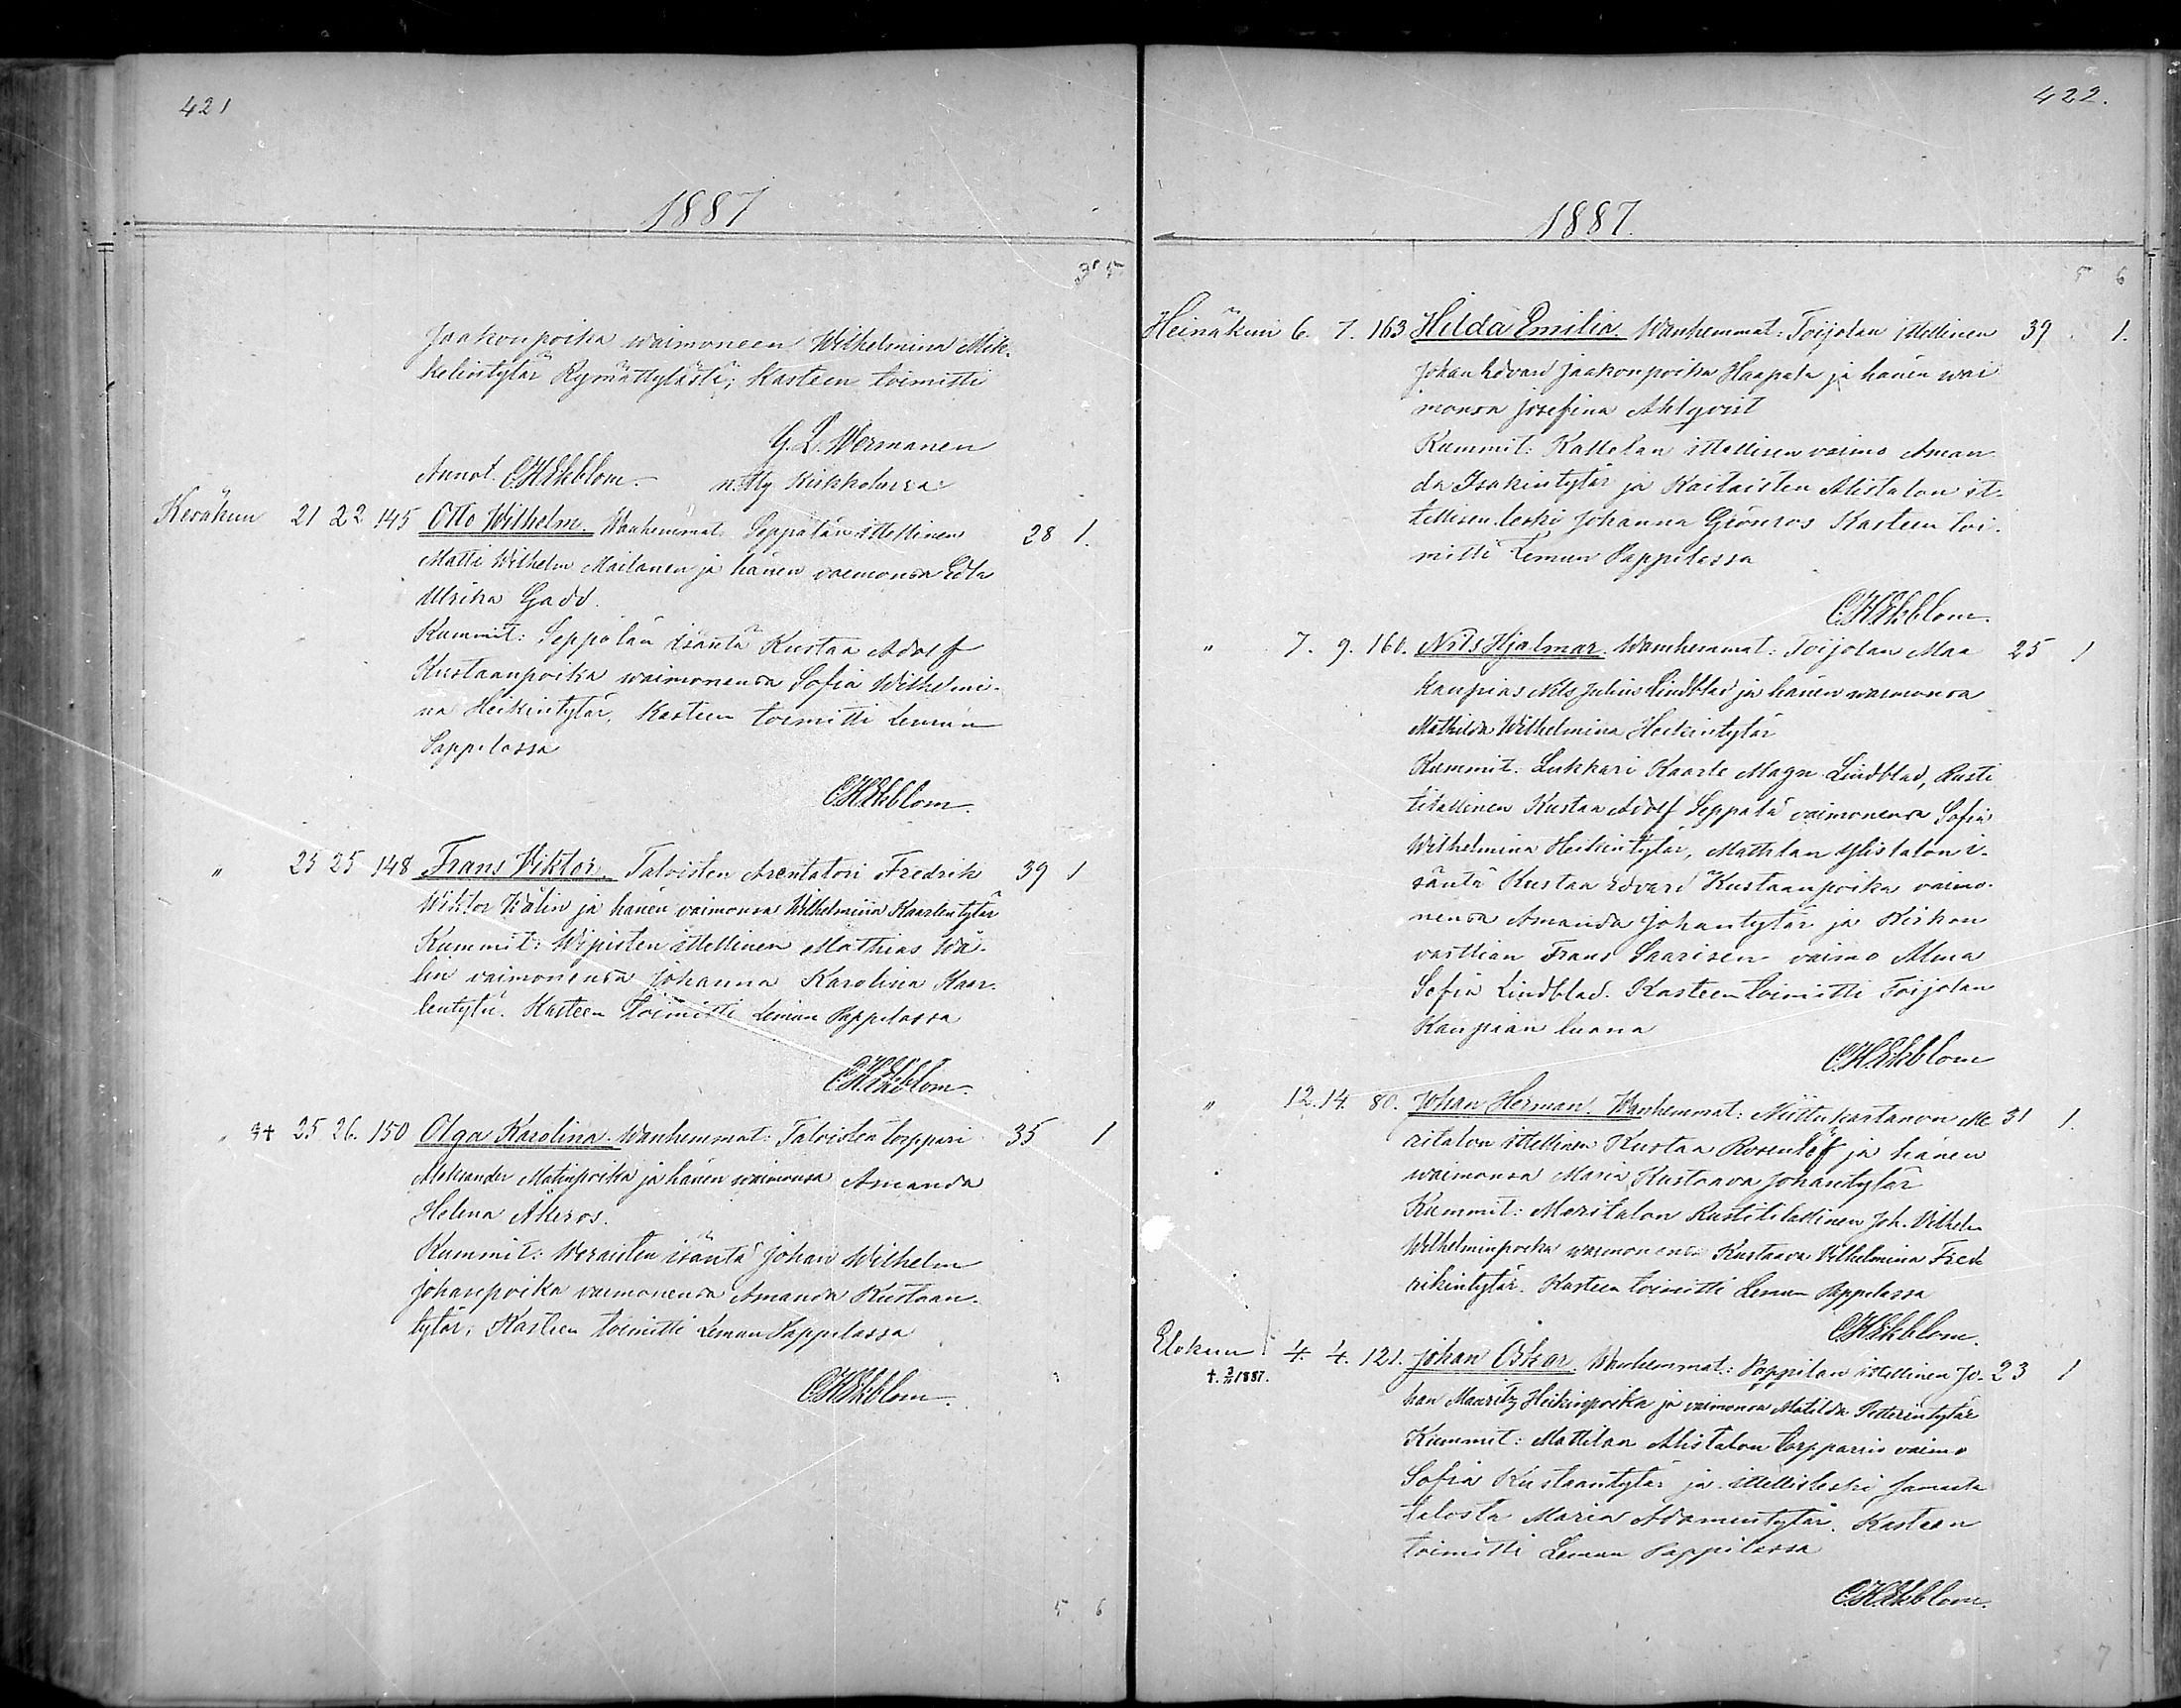 421
1887
3 5
Jaakonpoika waimoneen Wilhelmina Mik-
kelintytär Rymättylästä; Kasteen toimitti
G. L. Wermanen
Annot. C H Ekblom. n. Kirkkoherra
Kesäkuu 21 22 145 Otto Wilhelm. Wanhemmat Seppälän ittellinen 28 1.
Matti Wilhelm Mailanen ja hänen vaimonsa Edla
Ulrika Gadd.
Kummit: Seppälän isäntä Kustaa Adolf
Kustaanpoika waimonensa Sofia Wilhelmi-
na Heikintytär. Kasteen toimitti Lemun
Pappilassa
C H Ekblom.
" 23 25 148 Frans Viktor. Talvisten Arentatori Fredrik 39 1
Wiktor Wälin ja hänen vaimonsa Wilhelmiina Kaarlentytär
Kummit: Wijpisten ittellinen Mathias Wä-
lin vaimonensa Johanna Karolina Kaar-
lentytär. Kasteen toimitti Lemun Pappilassa
C H Ekblom.
" 25 26. 150 Olga Karolina. Wanhemmat: Talvisten torppari 35 1
Aleksander Matinpoika ja hänen waimonsa Amanda
Helena Åkeros.
Kummit: Weraisten isäntä Johan Wilhelm
Johanpoika vaimonensa Amanda Kustaan-
tytär; Kasteen toimitti Lemun Pappilassa
C H Ekblom.
5 6
422.
1887.
5 6
Heinäkuu 6. 7. 163 Hilda Emilia. Wanhemmat: Toijolan ittellinen 39 1.
Johan Edvard Jaakonpoika Haapala ja hänen wai
monsa Josefina Ahlqvist
Kummit: Kattelan ittellisen vaimo Aman
da Isakintytär ja Kaitaisten Alistalon it-
tellisen leski Johanna Grönros Kasteen toi-
mitti Lemun Pappilassa
C. H Ekblom.
" 7. 9. 160. Nils Hjalmar. Wanhemmat: Toijolan Maa 25 1
kaupias Nils Julius Lindblad ja hänen waimonsa
Mathilda Wilhelmina Heikintytär
Kummit. Lukkari Kaarle Magn. Lindblad, Rusti
tilallinen Kustaa Adolf Seppälä vaimonensa Sofia
Wilhelmina Heikintytär, Mattilan Ylistalon i-
säntä Kustaa Edvard Kustaanpoika vaimo-
nensa Amanda Johantytär ja Kirkon
varttian Frans Saarisen vaimo Alma
Sofia Lindblad. Kasteen toimitti Toijolan
Kaupian luona
C. H. Ekblom
" 12. 14. 80. Johan Herman. Wanhemmat: Me 31 1.
ritalon ittellinen Kustaa Rosenlöf ja hänen
waimonsa Maria Kustaava Johantytär
Kummit: Meritalon Rustitilallinen Joh. Vilhelm
Wilhelminpoika waimonensa Kustaava Vilhelmina Fred
rikintytär. Kasteen toimitti Lemun Pappilassa
C. H Ekblom.
Elokuu 4. 4. 121. Johan Oskar. Wanhemmat: Pappilan ittellinen Jo- 23 1
†. 3/11 1887.
han Mauritz Heikinpoika ja vaimonsa Matilda Petterintytär
Kummit: Mattilan Alistalon torpparin vaimo
Sofia Kustaantytär ja ittellisleski samasta
talosta Maria Adamintytär. Kasteen
toimitti Lemun Pappilassa
C. H Ekblom.
7